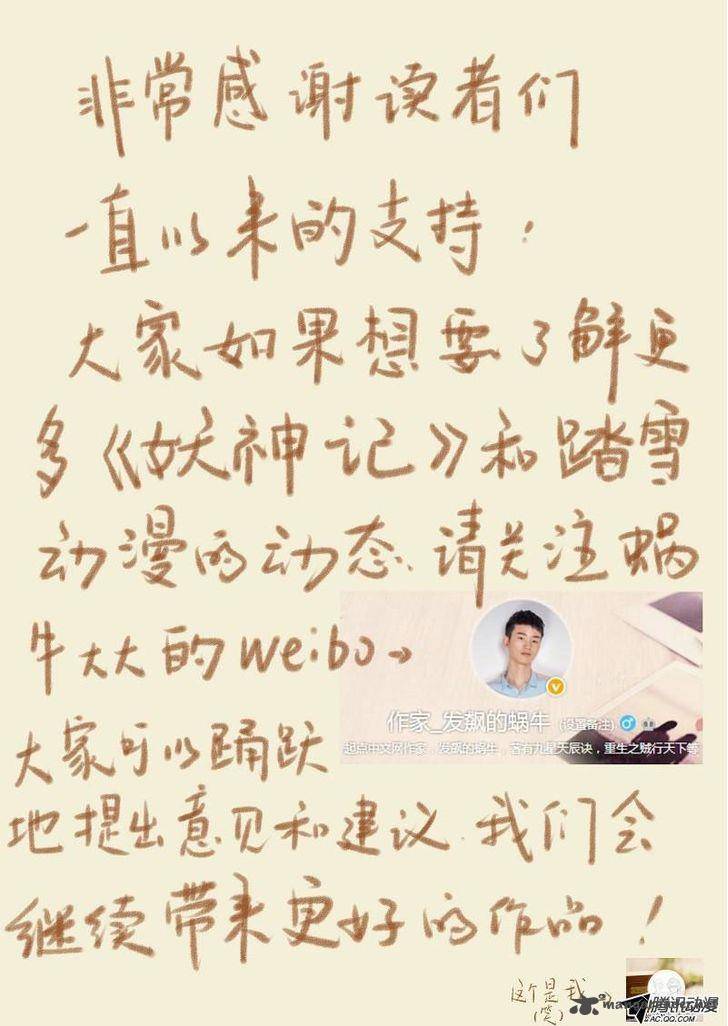 非常感谢读者们
一直以来的支持，
大家如果想要了解更
多《妖神记》和踏雪
动漫的动态，请关注蜗
牛大大的weibo→
作家_发飙的蜗牛 (设置备注)
起点中文网作家，发飙的蜗牛，著有九星天辰诀，重生之贼行天下等
大家可以踊跃
地提出意见和建议，我们会
继续带来更好的作品！
这个是我→
(笑)
腾讯动漫
AC.QQ.COM